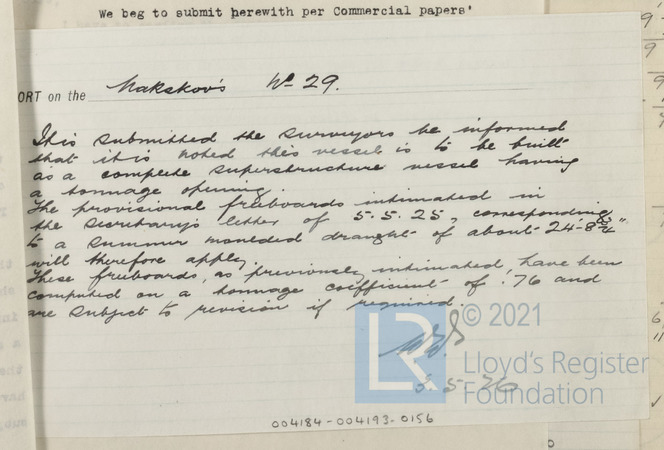 We beg to submit herewith per Commercial papers'
ORT on the Nakskov's No 29.
It is submitted the surveyors be informed
that it is noted this vessel is to be built
as a complete superstructure vessel having
a tonnage opening.
The provisional freeboards intimated in
the Secretary's letter of 5.5.25, corresponding
to a summer moulded draught of about 24-8
will therefore apply.
These freeboards, as previously intimated, have been
computed on a tonnage coefficient of .76 and
are subject to revision if required.
LR
© 2021
Lloyd's Register
Foundation
5.5.26
004184-004193-0156